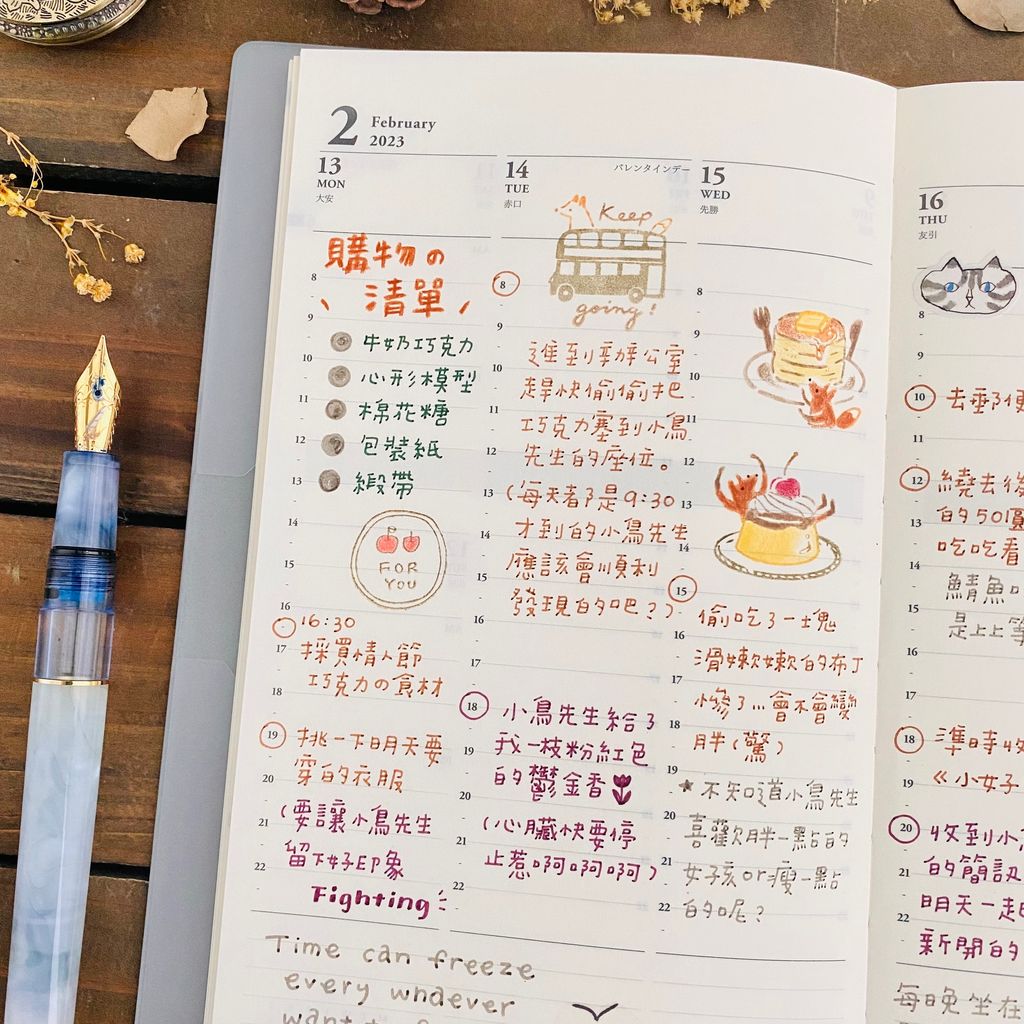 2 February
2023
13
MON
大安
購物の
清單
牛奶巧克力
心形模型
棉花糖
包裝紙
緞帶
FOR
YOU
16:30
採買情人節
巧克力の食材
挑一下明天要
穿的衣服
(要讓小鳥先生
留下好印象
Fighting
8
9
10
11
12
13
14
15
16
17
18
19
20
21
22
14
TUE
赤口
バレンタインデー
Keep
going!
進到辦公室
趕快偷偷把
巧克力塞到小鳥
先生的座位。
(每天都是9:30
才到的小鳥先生
應該會順利
發現的吧?)
小鳥先生給了
我一枝粉紅色
的鬱金香
(心臟快要停
止惹啊啊啊)
8
9
10
11
12
13
14
15
16
17
18
19
20
21
22
15
WED
先勝
偷吃了一塊
滑嫩嫩的布丁
慘了...會不會變
胖(驚)
★不知道小鳥先生
喜歡胖一點的
女孩or瘦一點
的呢?
8
9
10
11
12
14
15
16
17
18
19
20
21
22
16
THU
友引
去郵便
繞去後
的50圓
吃吃看
鯖魚口
是上上等
準時收
《小女子
收到小
的簡訊
明天一起
新開的
8
9
10
11
12
13
14
15
16
17
18
19
20
21
22
Time can freeze
every whdever
每晚坐在